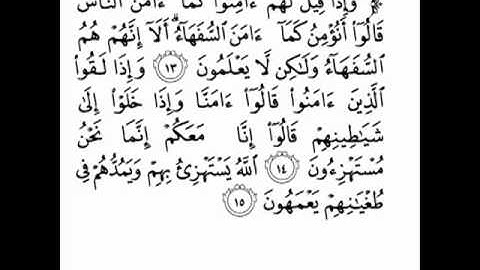 وَإِذَا قِيلَ لَهُمْ ءَامِنُوا۟ كَمَآ ءَامَنَ النَّاسُ
قَالُوٓا۟ أَنُؤْمِنُ كَمَآ ءَامَنَ السُّفَهَآءُ ۗ أَلَآ إِنَّهُمْ هُمُ
السُّفَهَآءُ وَلَٰكِن لَّا يَعْلَمُونَ ١٣ وَإِذَا لَقُوا۟
الَّذِينَ ءَامَنُوا۟ قَالُوٓا۟ ءَامَنَّا وَإِذَا خَلَوْا۟ إِلَىٰ
شَيَٰطِينِهِمْ قَالُوٓا۟ إِنَّا مَعَكُمْ إِنَّمَا نَحْنُ
مُسْتَهْزِءُونَ ١٤ اللَّهُ يَسْتَهْزِئُ بِهِمْ وَيَمُدُّهُمْ فِى
طُغْيَٰنِهِمْ يَعْمَهُونَ ١٥